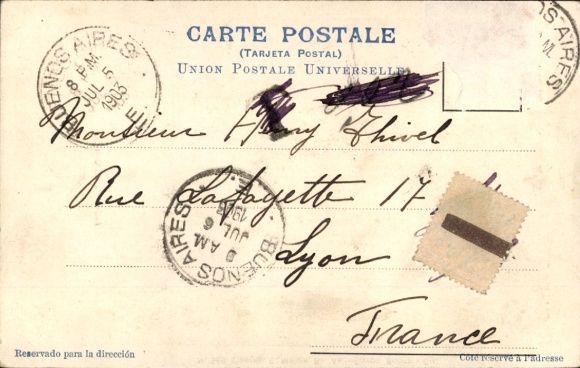 CARTE POSTALE
(TARJETA POSTAL)
UNION POSTALE UNIVERSELLE
BUENOS AIRES
8 P.M.
JUL 5
1903
E
OS AIRES
AM
Monsieur Henry Thivel
Rue Lafayette 17
BUENOS AIRES
AM
JUL 6
Lyon
France
Reservado para la dirección
Côté réservé à l'adresse